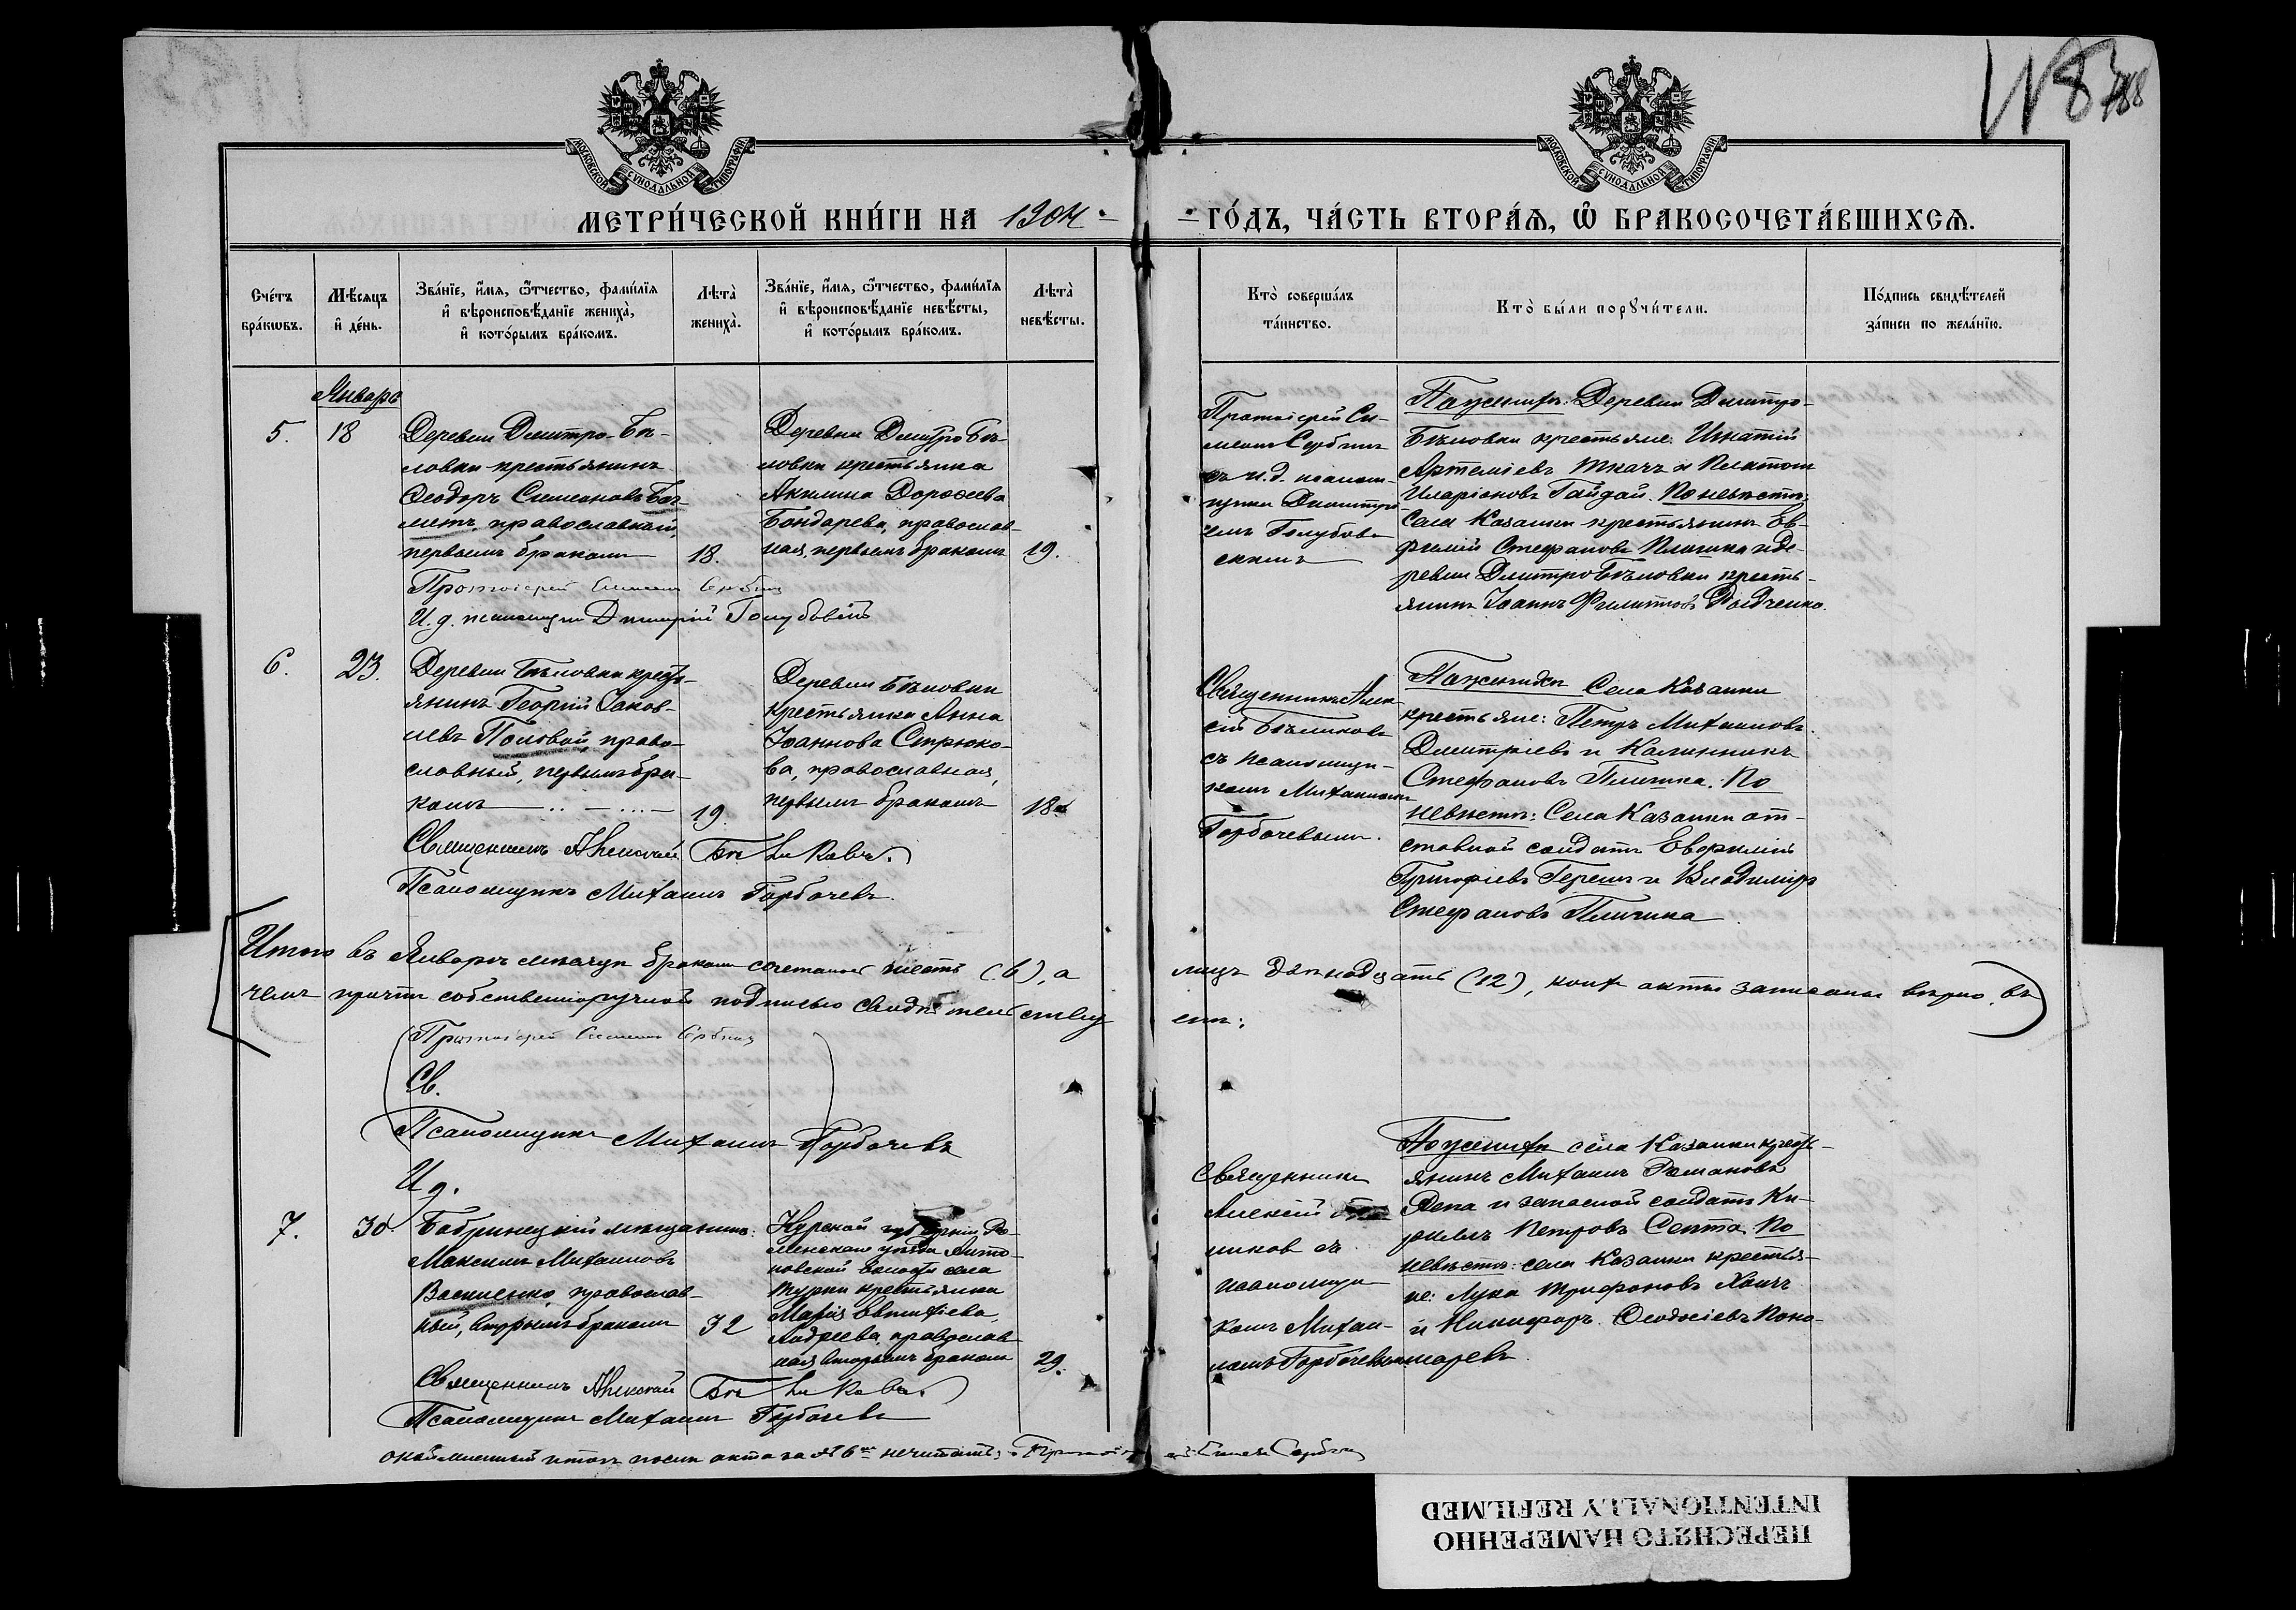 МОСКОВСКОЙ СѴНОДАЛЬНОЙ ТИПОГРАФІИ
МОСКОВСКОЙ СѴНОДАЛЬНОЙ ТИПОГРАФІИ
№ 83
788
МЕТРИ́ЧЕСКОЙ КНИ́ГИ НА 1904 ГО́ДЪ, ЧА́СТЬ ВТОРА́Ѧ, Ѽ БРАКОСОЧЕТА́ВШИХСѦ.
Сче́тъ бра́кѡвъ.
Мѣ́сѧцъ и҆ де́нь.
Зва́нїе, и҆́мѧ, ѻ҆́тчество, фами́лїѧ
и҆ вѣроисповѣ́данїе жениха̀,
и҆ кото́рымъ бра́комъ.
Лѣта̀ жениха̀.
Зва́нїе, и҆́мѧ, ѻ҆́тчество, фами́лїѧ
и҆ вѣроисповѣ́данїе невѣ́сты,
и҆ кото́рымъ бра́комъ.
Лѣта̀ невѣ́сты.
Кто̀ соверша́лъ
та́инство.
Кто̀ бы́ли порꙋчи́тели.
По́дпись свидѣ́телей
за́писи по жела́нїю.
Января
5.
18
Деревни Дмитро-Бѣ-
ловки крестьянинъ
Ѳеодоръ Симеоновъ
православный,
первымъ бракомъ
18.
Деревни Дмитро Бѣ-
ловки крестьянка
Акилина Дороѳеева
Бондарева, православ-
ная, первымъ бракомъ
19.
Протоіерей Си-
меонъ Сербинъ
съ и.д. псалом-
щика Димитрі-
емъ Голубов-
скимъ
По женихѣ: Деревни Дмитро-
Бѣловки крестьяне: Игнатій
Артеміевъ Ткачъ и Платонъ
Иларіоновъ Гайдай. По невѣстѣ:
Села Казанки крестьянинъ Ев-
фимій Стефановъ и де-
ревни Дмитро Бѣловки кресть-
янинъ Іоаннъ Филипповъ
Протоіерей Симеонъ Сербинъ
И. д. псаломщика Димитрій Голубовскій
6.
23.
Деревни Бѣловки кресть-
янинъ Георгій Іаков-
левъ Половой, право-
славный, первымъ бра-
комъ
19.
Деревни Бѣловки
крестьянка Анна
Іоаннова Стрюко-
ва, православная,
первымъ бракомъ
18.
Священникъ Алек-
сій Бѣликовъ
съ псаломщи-
комъ Михаиломъ
Горбачевымъ.
По женихѣ Села Казанки
крестьяне: Петръ Михаиловъ
Дмитріевъ и Калинникъ
Стефановъ По
невѣстѣ: Села Казанки от-
ставной солдатъ Евфимій
Григоріевъ и Владиміръ
Стефановъ
Священникъ Алексій Бѣликовъ.
Псаломщикъ Михаилъ Горбачевъ.
Итого въ Январѣ мѣсяцѣ браковъ сочетано шесть (6), а лицъ двѣнадцать (12), коихъ акты записаны вѣрно, въ
чемъ причтъ собственноручной подписью свидѣтельству етъ:
Протоіерей Симеонъ Сербинъ
Св.
Псаломщикъ Михаилъ Горбачевъ
И д.
7.
30
Бобринецкій мѣщанинъ:
Максимъ Михаиловъ
Василенко, православ-
ный, вторымъ бракомъ
32
Курской губерніи
уѣзда
волости села
крестьянка
Марія
Андреева, православ-
ная, вторымъ бракомъ
29.
Священникъ
Алексій Бѣ-
ликовъ съ
псаломщи-
комъ Михаи-
ломъ Горбачевымъ
По женихѣ села Казанки кресть-
янинъ Михаилъ Романовъ
Репа и запасной солдатъ Ки-
риллъ Петровъ По
невѣстѣ: села Казанки крестья-
не: Лука Трифоновъ
и Никифоръ Ѳеодосіевъ Поно-
маревъ.
Священникъ Алексій Бѣликовъ
Псаломщикъ Михаилъ Горбачевъ
итогъ послѣ акта за № 6 не читать: Протоіерей Симеонъ Сербинъ
ПЕРЕСНЯТО НАМЕРЕННО
INTENTIONALLY REFILMED